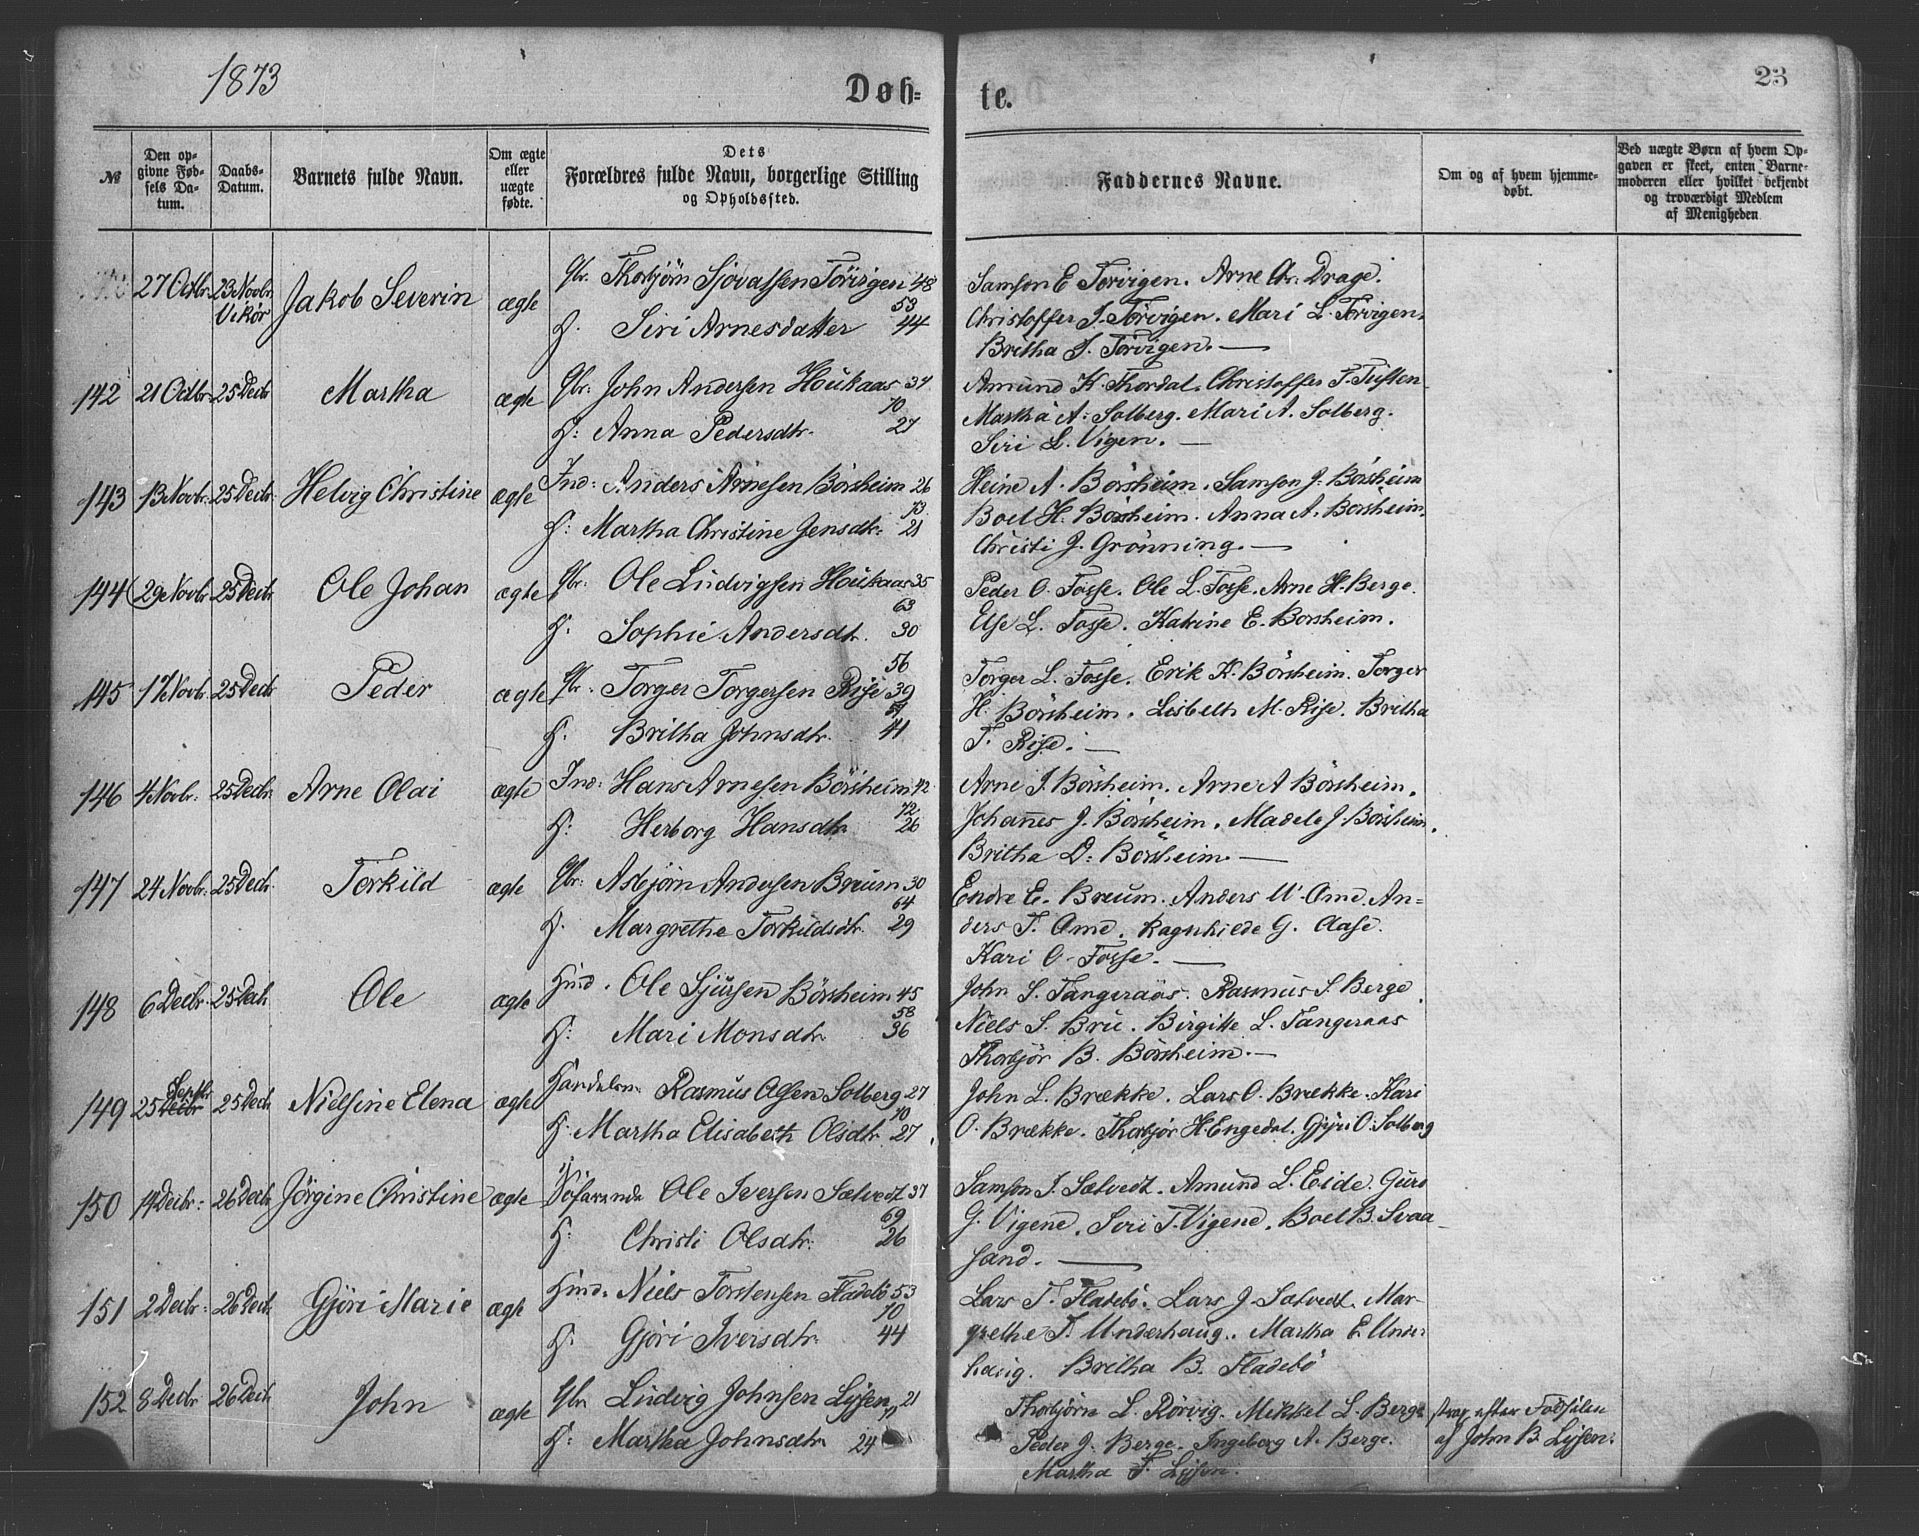 1873
Døb-
te.
23
№
Den op-
givne Fød-
sels Da-
tum.
Daabs-
Datum.
Barnets fulde Navn.
Om ægte
eller
uægte
fødte.
Dets
Forældres fulde Navn, borgerlige Stilling
og Opholdssted.
Faddernes Navne.
Om og af hvem hjemme-
døbt.
Ved uægte Børn af hvem Op-
gaven er skeet, enten Barne-
moderen eller hvilket bekjendt
og troværdigt Medlem
af Menigheden
27 Octbr. 23 Novbr. Vikør Jakob Severin ægte Gbr. Thorbjörn Sjovatsen Törvigen 48
53
H. Siri Arnesdatter 44
Samson E Torvigen. Arne Chr. Drage.
Christoffer J. Törvigen. Mari L. Torvigen.
Britha J. Törvigen. —
142 21 Octbr. 25 Decbr Martha ægte Gbr: John Andersen Houkaas 34
70
H: Anna Pedersdtr. 27
Amund K. Thordal. Christoffer T. Tuften
Martha A. Solberg. Mari A. Solberg.
Siri L. Vigen. —
143 13 Novbr. 25 Decbr. Helvig Christine ægte Ind: Anders Arnesen Börsheim 26
73
H: Martha Christine Jensdtr. 21
Heine A. Börsheim. Samson J. Börsheim
Boel H. Börsheim. Anna A. Börsheim.
Christi J. Grönning. —
144 29 Novbr 25 Decbr. Ole Johan ægte Gbr: Ole Ludvigsen Houkaas 35
63
H. Sophie Andersdtr. 30
Peder O. Fosse. Ole L. Fosse. Arne H. Berge.
Else L. Fosse. Katrine E. Borsheim.
145 17 Novbr. 25 Decbr Peder ægte
56
Gbr: Torger Torgersen Rise 39
H. Britha Johnsdtr. 41
Torger L. Fosse. Erik K. Börsheim. Torger
H. Börsheim. Lisbeth M. Rise. Britha
T. Rise. —
146 4 Novbr. 25 Decbr. Arne Olai ægte Ind: Hans Arnesen Börsheim 42
72
H: Herborg Hansdtr 26
Arne J. Börsheim. Arne A Börsheim.
Johannes J. Börsheim. Madele J. Börsheim.
Britha D. Börsheim. —
147 24 Novbr. 25 Decbr. Torkild ægte Gbr: Asbjörn Andersen Breum 30
64
H. Margrethe Torkildsdtr. 29
Endre E. Breum. Anders M. Ome. An-
ders T. Ome. Ragnhilde G. Aase.
Kari O. Fosse. —
148 6 Decbr. 25 Decbr. Ole ægte Huud. Ole Sjursen Börsheim 45
58
H: Mari Monsdtr. 36
John S. Tangeraas. Rasmus S. Berge
Niels S. Bru. Birgitte L. Tangeraas
Thorbjör B. Börsheim. —
149 Septbr 25 Decbr 25 Decbr Nielsine Elena ægte Handelsm. Rasmus Olsen Solberg 27
70
H. Martha Elisabeth Olsdtr. 27
John L. Brække. Lars O. Brække. Kari
O. Brække. Thorbjör H. Engedal. Gjöri O. Solberg
150 14 Decbr. 26 Decbr Jörgine Christine ægte Söfarende Ole Iversen Sætvedt 37
69
H: Christi Olsdtr. 26
Samson I. Sætvedt. Amund L. Eide. Guro
G. Vigene. Siri T. Vigene. Boel B. Svaa-
sand. —
151 2 Decbr. 26 Decbr Gjöri Marie ægte Huud. Niels Torstensen Fladebö 53
70
H. Gjöri Iversdtr. 44
Lars T. Fladebö. Lars J. Sætvedt. Mar-
grethe T. Underhaug. Martha E. Under
haug. Britha B. Fladebö
152 8 Decbr 26 Decbr John ægte Gbr. Ludvig Johnsen Lyssen 21
H: Martha Johnsdtr 24
Thorbjörn L. Rörvig. Mikkel L. Berge
Peder J. Berge. Ingeborg A. Berge.
Martha T. Lyssen.
strax efter Födselen
af John B. Lyssen.